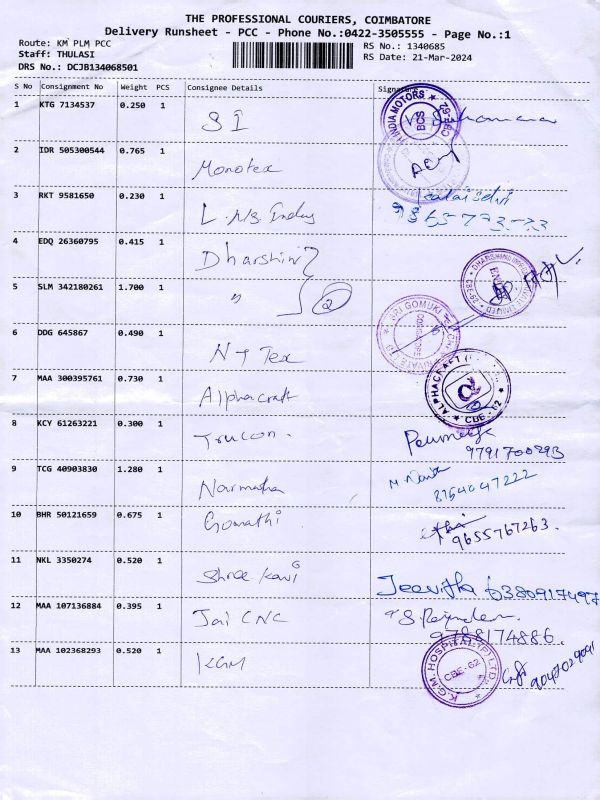 THE PROFESSIONAL COURIERS, COIMBATORE
Delivery Runsheet - PCC - Phone No.:0422-3505555 - Page No.:1
Route: KM PLM PCC
RS No.: 1340685
Staff: THULASI
RS Date: 21-Mar-2024
DRS No.: DCJB134068501
S No Consignment No Weight PCS Consignee Details Signature
1 KTG 7134537 0.250 1 S I
INDIA MOTORS BCS
2 IDR 505300544 0.765 1 Monotex
3 RKT 9581650 0.230 1
4 EDQ 26360795 0.415 1 Dharshini
5 SLM 342180261 1.700 1 " 2
SRI GOMUKI
6 DDG 645867 0.490 1 N T Tex
7 MAA 300395761 0.730 1 Alphacraft
ALPHACRAFT CBE-62
8 KCY 61263221 0.300 1 Trucon. 9791700293
9 TCG 40903830 1.280 1 Narmatha 8754047222
10 BHR 50121659 0.675 1 Gomathi 9655767263.
11 NKL 3350274 0.520 1 Shree Kavi Jeevitha 6380917497
12 MAA 107136884 0.395 1 Jai CNC 9788174886.
13 MAA 102368293 0.520 1 KGM
K.G.M. HOSPITAL (P) LTD. CBE-62